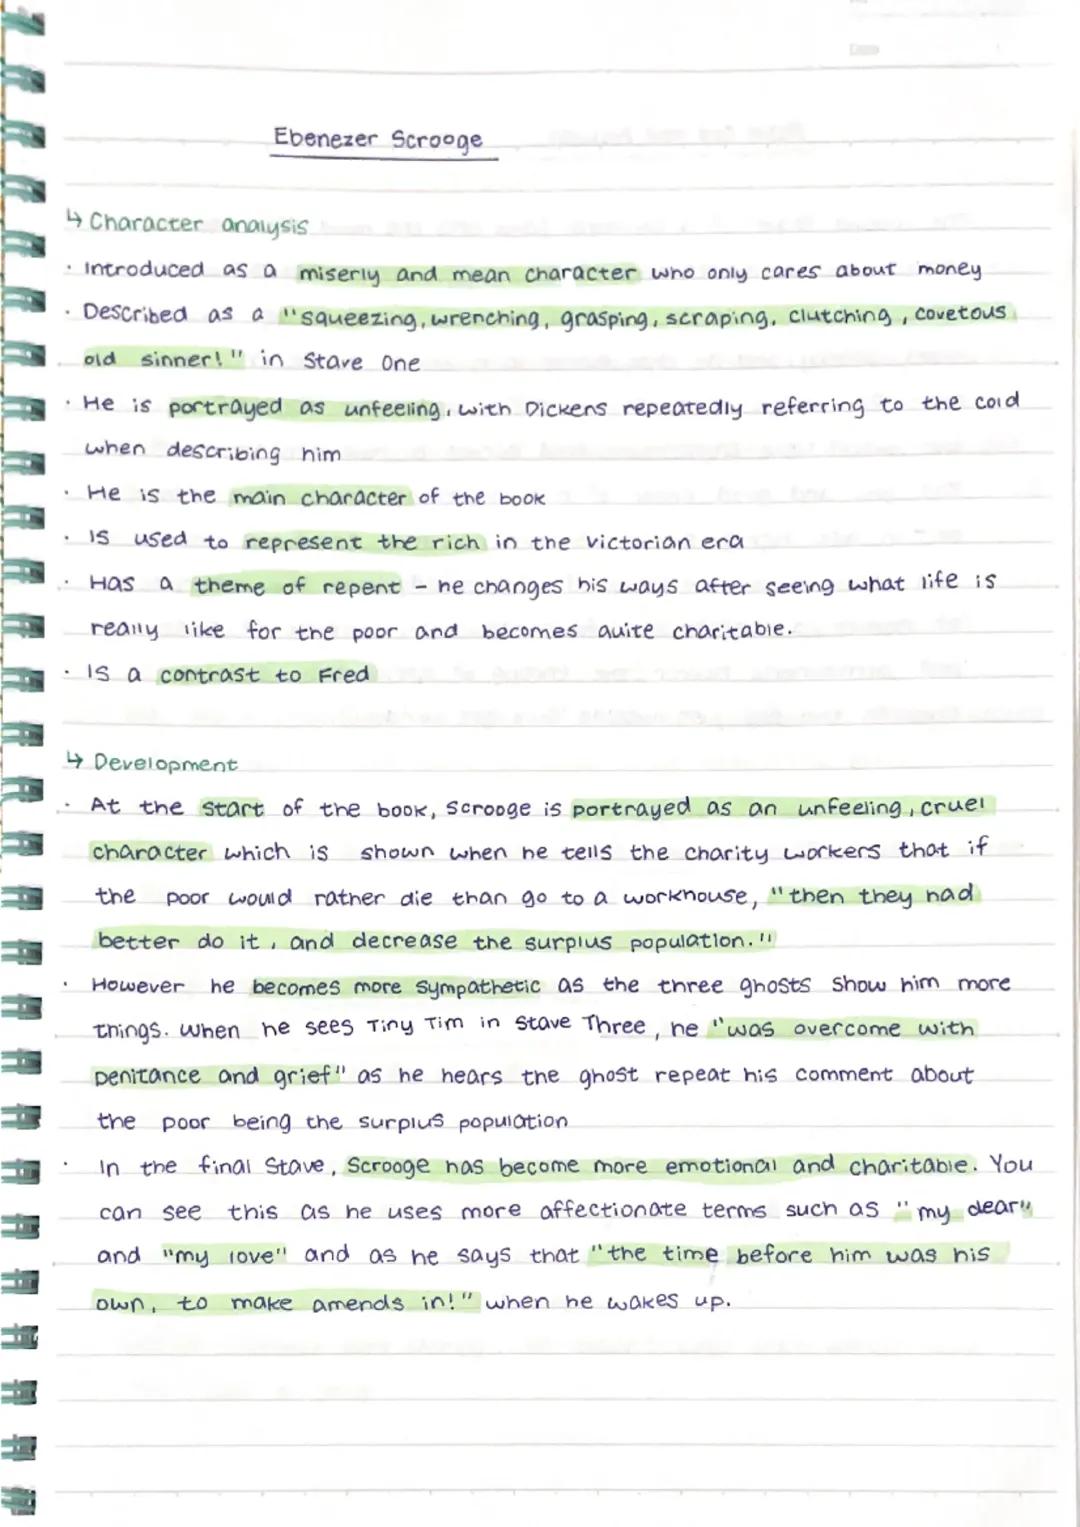 Ebenezer Scrooge
↳ Character analysis
· Introduced as a miserly and mean character who only cares about money
· Described as a "squeezing, wrenching, grasping, scraping, clutching, covetous
old sinner!" in Stave One
· He is portrayed as unfeeling, with Dickens repeatedly referring to the cold
when describing him
· He is the main character of the book
· Is used to represent the rich in the victorian era
· Has a theme of repent - he changes his ways after seeing what life is
really like for the poor and becomes quite charitable.
· Is a contrast to Fred
↳ Development
· At the start of the book, Scrooge is portrayed as an unfeeling, cruel
character which is shown when he tells the charity workers that if
the poor would rather die than go to a workhouse, "then they had
better do it, and decrease the surplus population."
· However he becomes more sympathetic as the three ghosts show him more
things. When he sees Tiny Tim in Stave Three, he "was overcome with
penitance and grief" as he hears the ghost repeat his comment about
the poor being the surplus population
· In the final Stave, Scrooge has become more emotional and charitable. You
can see this as he uses more affectionate terms such as "my dear"
and "my love" and as he says that "the time before him was his
own, to make amends in!" when he wakes up.